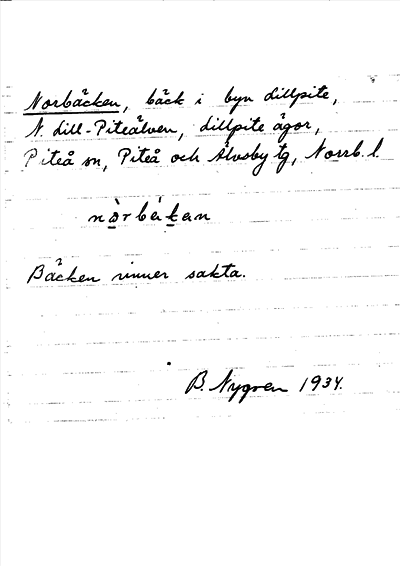 Norbäcken, bäck i byn Lillpite,
N. Lill-Piteälven, Lillpite ägor,
Piteå sn, Piteå och Älvsby tg, Norrb. l.
Bäcken rinner sakta.
B. Nygren 1934.